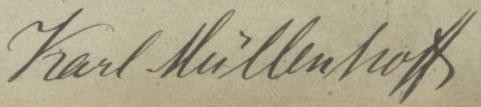 Karl Müllenhoff